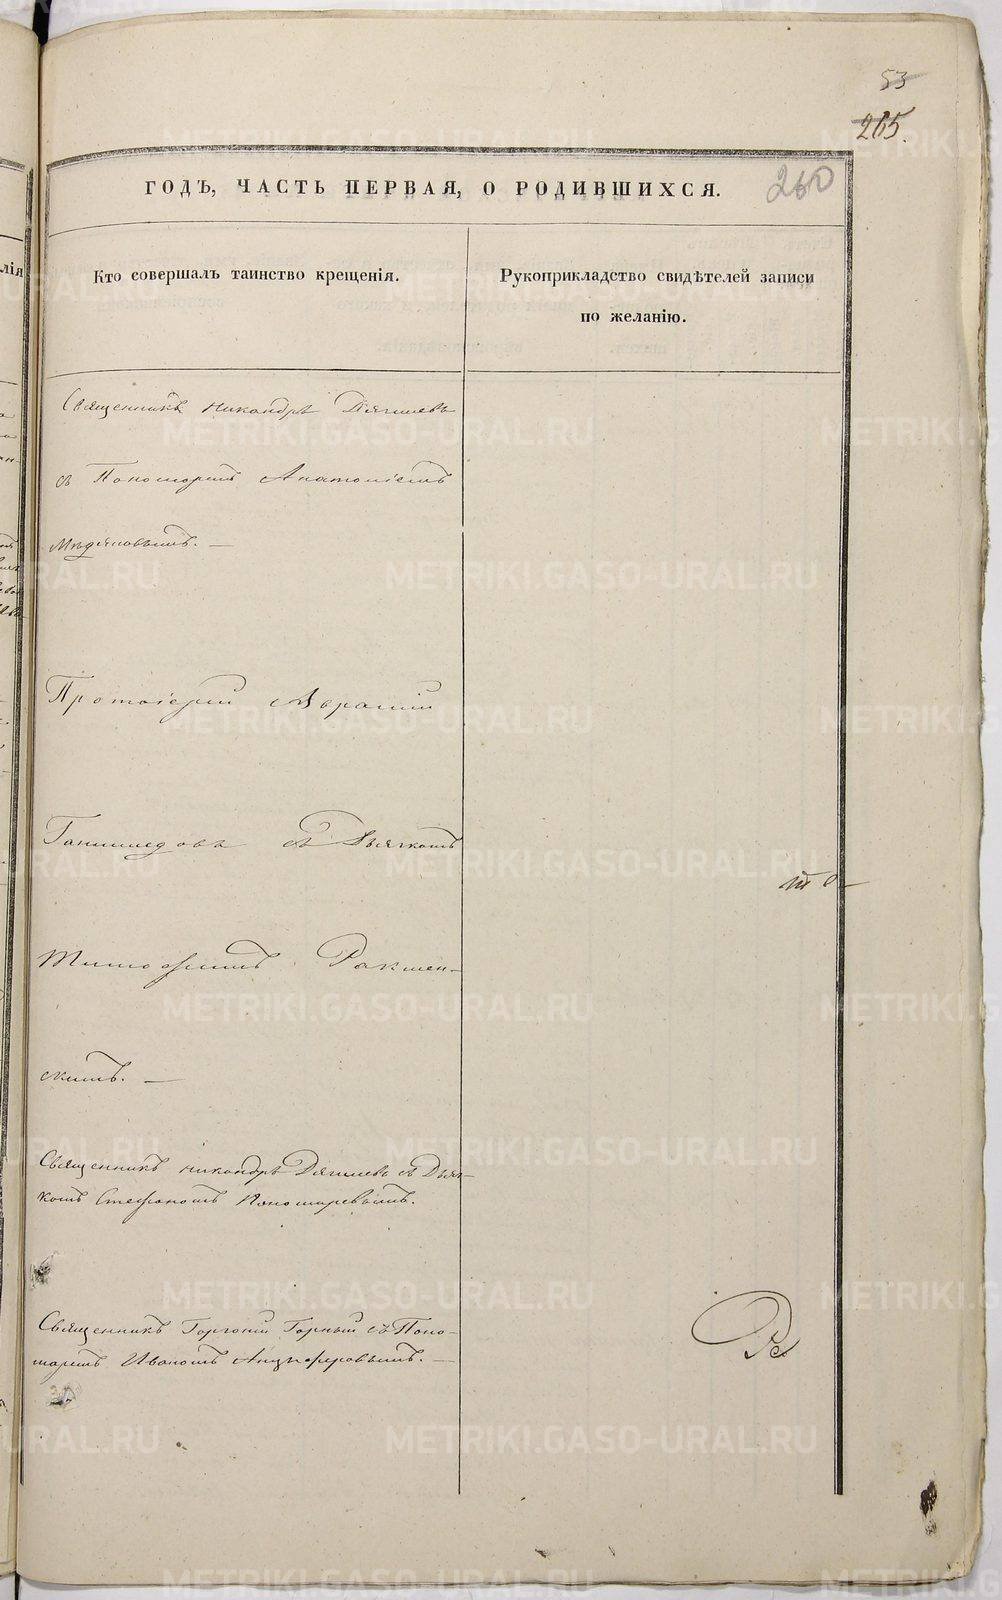 53
265.
260
ГОДЪ, ЧАСТЬ ПЕРВАЯ, О РОДИВШИХСЯ.
Кто совершалъ таинство крещенія.
Рукоприкладство свидѣтелей записи
по желанію.
Священникъ Никандръ Дягилевъ
съ Пономаремъ Анатоліемъ
Протоіерей Авраамій
съ Дьячкомъ
Тимофеемъ
скимъ. —
Священникъ Никандръ Дягилевъ съ Дьяч-
комъ Стефаномъ Пономаревымъ.
Священникъ Горгоній Горный съ Поно-
маремъ Иваномъ Анцыферовымъ. —
METRIKI.GASO-URAL.RU